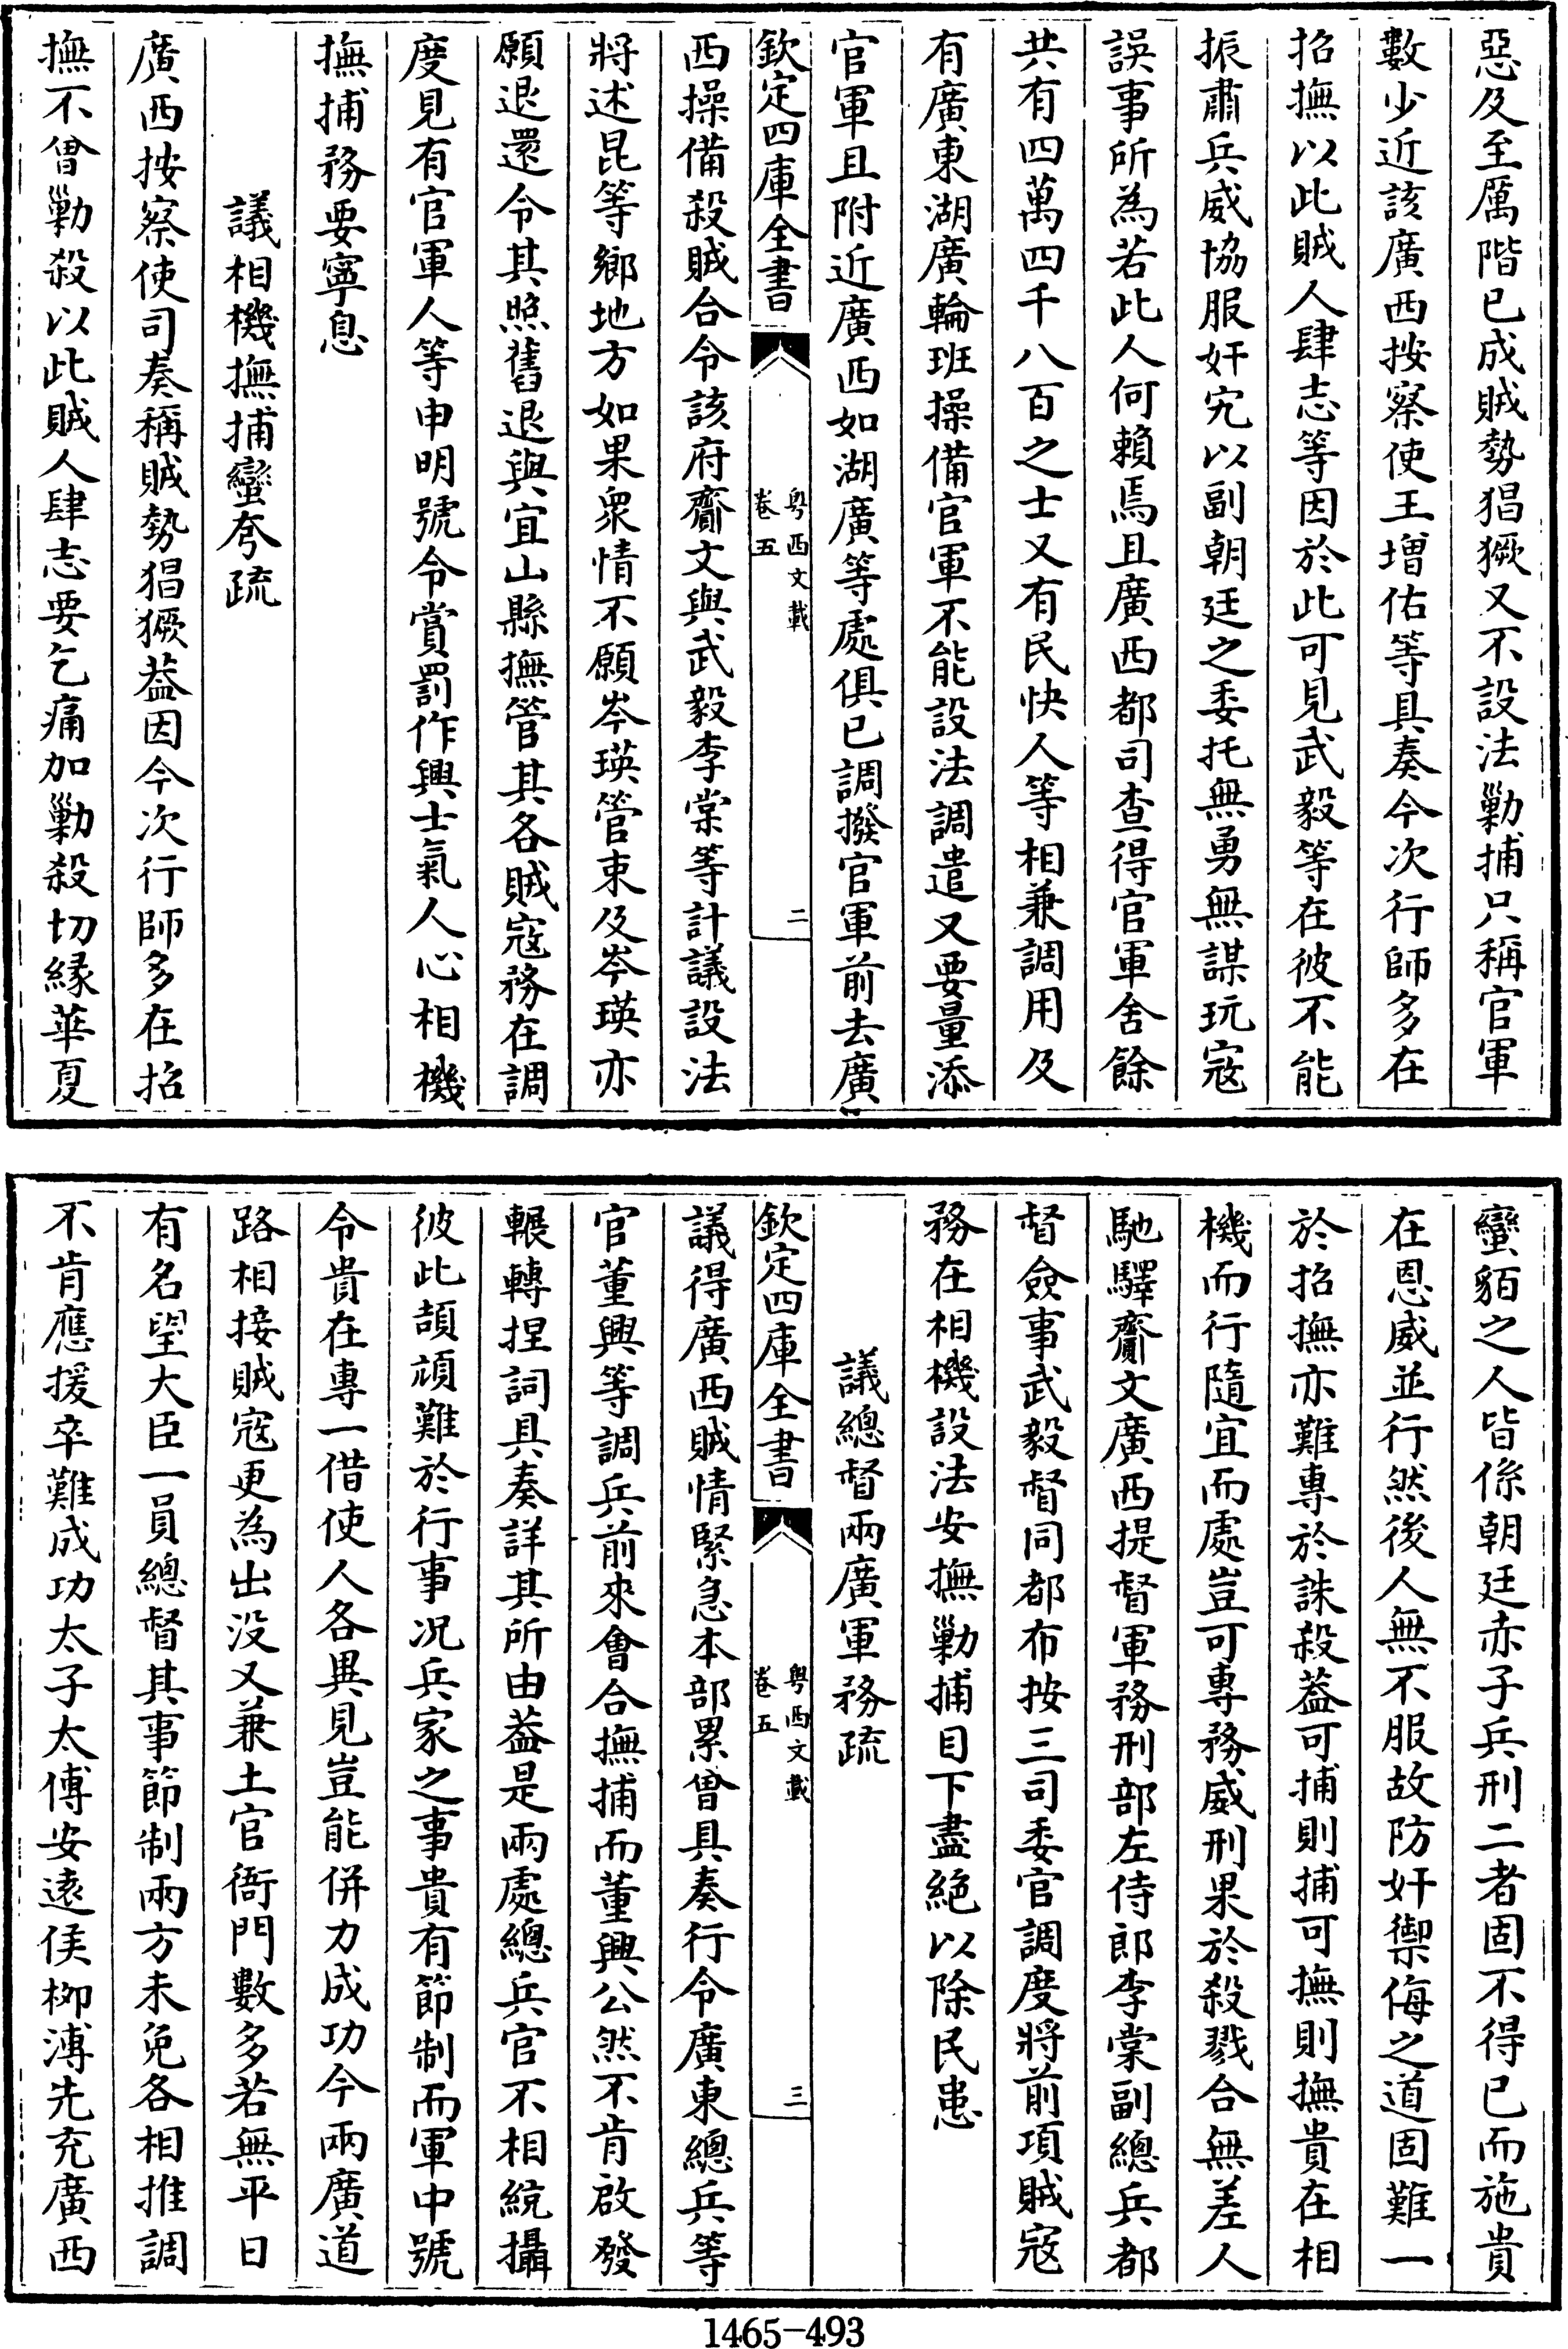 惡及至厲階已成賊勢猖獗又不設法勦捕只稱官軍
數少近該廣西按察使王增佑等具奏今次行師多在
招撫以此賊人肆志等因於此可見武毅等在彼不能
振肅兵威協服奸宄以副朝廷之委托無勇無謀玩寇
誤事所為若此人何賴焉且廣西都司查得官軍舍餘
共有四萬四千八百之士又有民快人等相兼調用及
有廣東湖廣輪班操備官軍不能設法調遣又要量添
官軍且附近廣西如湖廣等處俱已調撥官軍前去廣
欽定四庫全書
粵西文載
卷五
二
西操備殺賊合令該府齎文與武毅李棠等計議設法
將述昆等鄉地方如果衆情不願岑瑛管束及岑瑛亦
願退還令其照舊退與宜山縣撫管其各賊寇務在調
度見有官軍人等申明號令賞罰作興士氣人心相機
撫捕務要寧息
議相機撫捕蠻夸疏
廣西按察使司奏稱賊勢猖獗蓋因今次行師多在招
撫不曾勦殺以此賊人肆志要乞痛加勦殺切緣華夏
蠻貊之人皆係朝廷赤子兵刑二者固不得已而施貴
在恩威並行然後人無不服故防奸禦侮之道固難一
於招撫亦難專於誅殺蓋可捕則捕可撫則撫貴在相
機而行隨宜而處豈可專務威刑果於殺戮合無差人
馳驛齎文廣西提督軍務刑部左侍郎李棠副總兵都
督僉事武毅督同都布按三司委官調度將前項賊寇
務在相機設法安撫勦捕目下盡絕以除民患
議總督兩廣軍務疏
欽定四庫全書
粵西文載
卷五
三
議得廣西賊情緊急本部累曾具奏行令廣東總兵等
官董興等調兵前來會合撫捕而董興公然不肯啟發
輾轉捏詞具奏詳其所由蓋是兩處總兵官不相統攝
彼此頡頏難於行事況兵家之事貴有節制而軍中號
令貴在專一借使人各異見豈能併力成功今兩廣道
路相接賊寇更為出没又兼土官衙門數多若無平日
有名望大臣一員總督其事節制兩方未免各相推調
不肯應援卒難成功太子太傅安遠侯柳溥先充廣西
1465-493